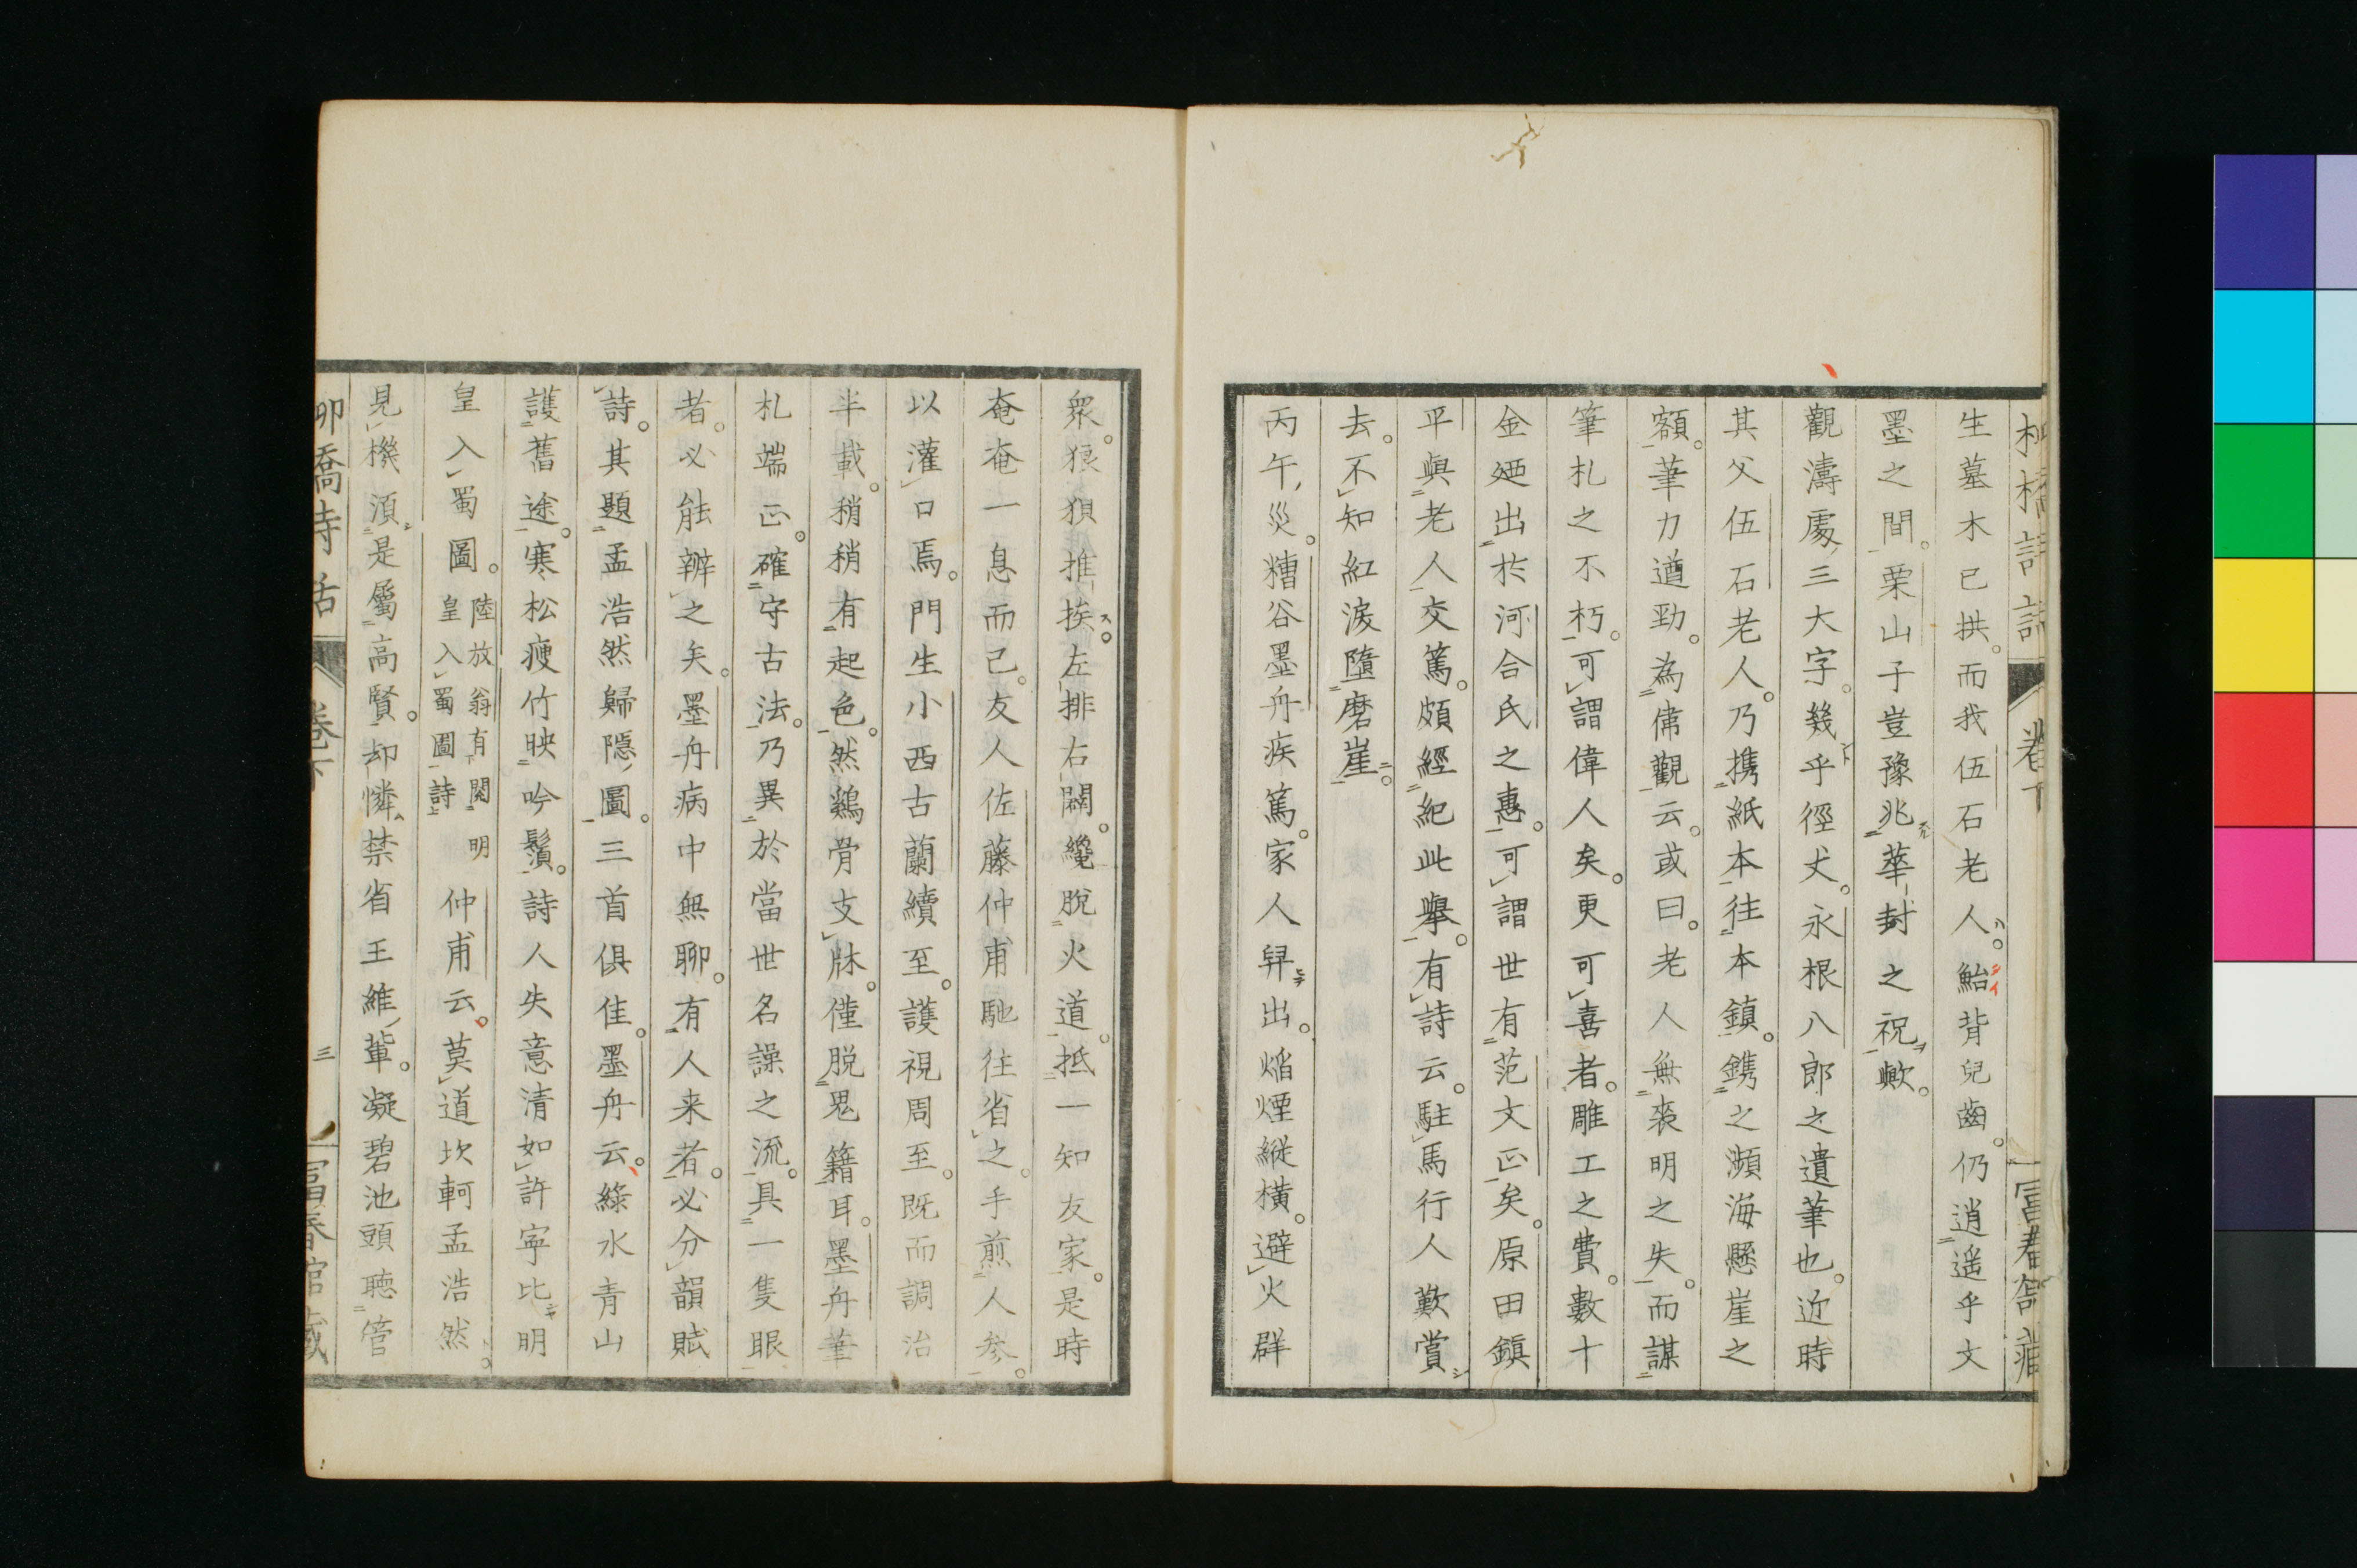 柳橋詩話 卷下 富春館藏
生墓木已拱。而我伍石老人。鮐背兒齒。仍逍遥乎文
墨之間。栗山子豈豫兆華封之祝歟。
觀濤處三大字。幾乎徑丈。永根八郎之遺筆也。近時
其父伍石老人。乃携紙本往本鎮。鐫之瀕海懸崖之
額。筆力遒勁。為偉觀云。或曰。老人無喪明之失。而謀
筆札之不朽。可謂偉人矣。更可喜者。雕工之費。數十
金廼出於河合氏之惠。可謂世有范文正矣。原田鎮
平與老人交篤。頗經紀此舉。有詩云。駐馬行人歎賞
去。不知紅淚墮磨崖。
丙午災。糟谷墨舟疾篤。家人舁出。焰煙縱横。避火群
衆。狼狽推挨。左排右闢。纔脫火道。抵一知友家。是時
奄奄一息而已。友人佐藤仲甫馳往省之。手煎人參。
以灌口焉。門生小西古蘭續至。護視周至。既而調治
半載。稍稍有起色。然鷄骨支牀。僅脱鬼籍耳。墨舟筆
札端正。確守古法。乃異於當世名譟之流。具一隻眼
者。必能辧之矣。墨舟病中無聊。有人来者。必分韻賦
詩。其題孟浩然歸隠圖。三首俱佳。墨舟云。綠水青山
護舊途。寒松瘦竹映吟鬚。詩人失意清如許寧比明
皇入蜀圖。陸放翁有閱明
皇入蜀圖詩
仲甫云。莫道坎軻孟浩然。
見機湏是屬高賢。却憐禁省王維輩。凝碧池頭聽管
柳橋詩話 卷下 三 富春館藏